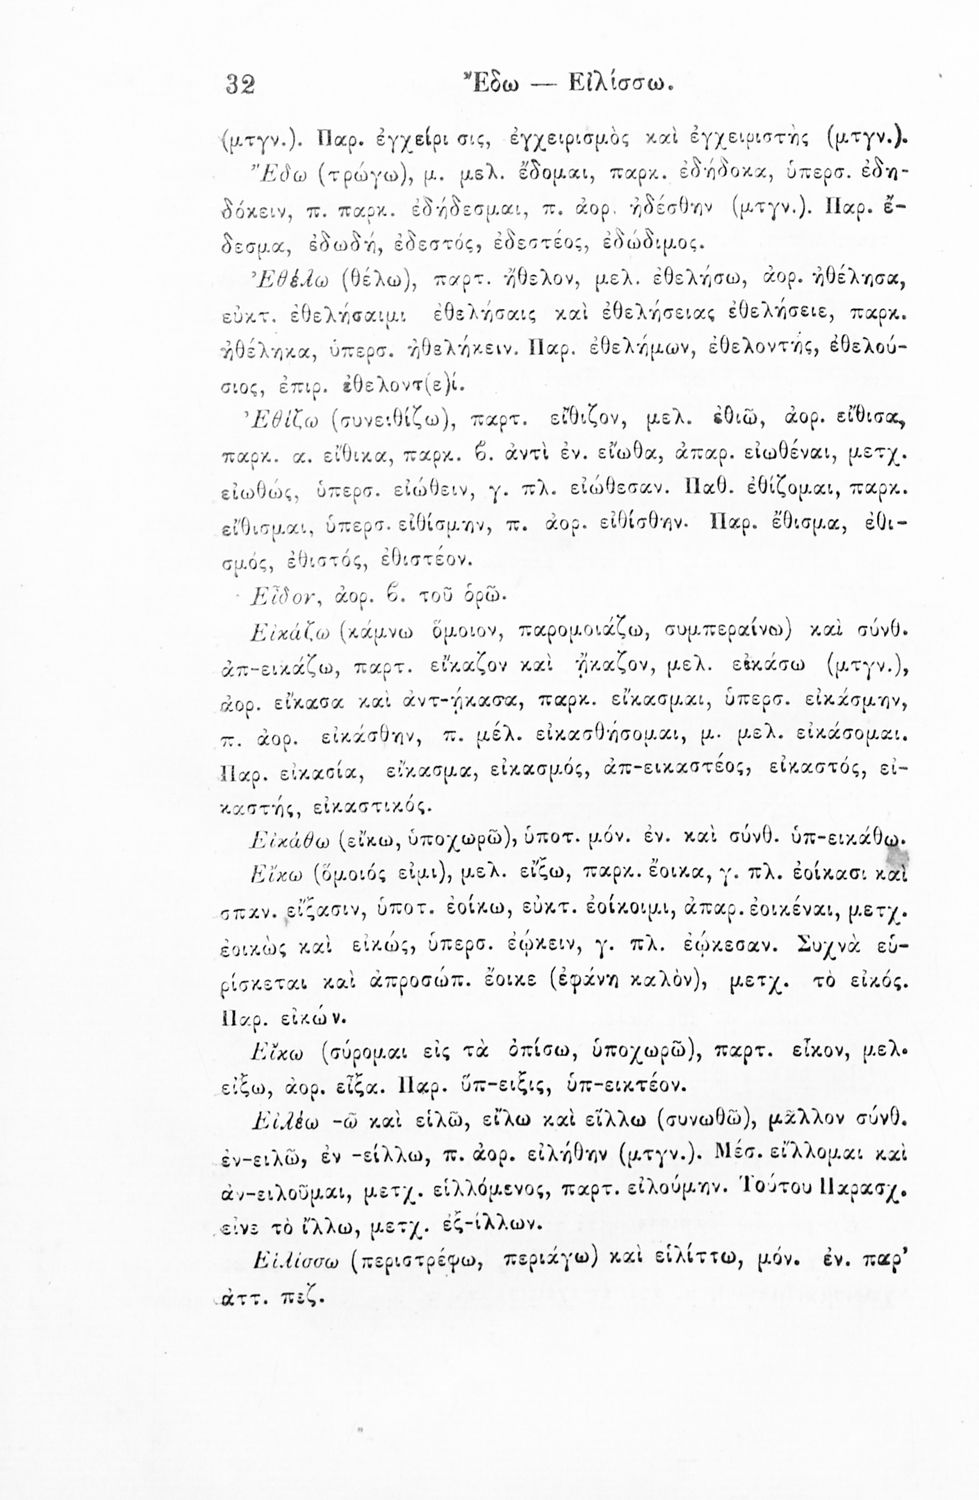 32 Ἔδω — Εἱλίσσω.
(μτγν.). Παρ. ἐγχείρισις, ἐγχειρισμὸς καὶ ἐγχειριστὴς (μτγν.).
Ἔδω (τρώγω), μ. μελ. ἔδομαι, παρκ. ἐδήδοκα, ὑπερσ. ἐδη-
δόκειν, π. παρκ. ἐδήδεσμαι, π. ἀορ. ἠδέσθην (μτγν.). Παρ. ἔ-
δεσμα, ἐδωδή, ἐδεστός, ἐδεστέος, ἐδώδιμος.
Ἐθέλω (θέλω), παρτ. ἤθελον, μελ. ἐθελήσω, ἀορ. ἠθέλησα,
εὐκτ. ἐθελήσαιμι ἐθελήσαις καὶ ἐθελήσειας ἐθελήσειε, παρκ.
ἠθέληκα, ὑπερσ. ἠθελήκειν. Παρ. ἐθελήμων, ἐθελοντής, ἐθελού-
σιος, ἐπιρ. ἐθελοντ(ε)ί.
Ἐθίζω (συνειθίζω), παρτ. εἴθιζον, μελ. ἐθιῶ, ἀορ. εἴθισα,
παρκ. α. εἴθικα, παρκ. ϐ. ἀντὶ ἐν. εἴωθα, ἀπαρ. εἰωθέναι, μετχ.
εἰωθώς, ὑπερσ. εἰώθειν, γ. πλ. εἰώθεσαν. Παθ. ἐθίζομαι, παρκ.
εἴθισμαι, ὑπερσ. εἰθίσμην, π. ἀορ. εἰθίσθην. Παρ. ἔθισμα, ἐθι-
σμός, ἐθιστός, ἐθιστέον.
Εἶδον, ἀορ. ϐ. τοῦ ὁρῶ.
Εἰκάζω (κάμνω ὅμοιον, παρομοιάζω, συμπεραίνω) καὶ σύνθ.
ἀπ-εικάζω, παρτ. εἴκαζον καὶ ᾔκαζον, μελ. εἰκάσω (μτγν.),
ἀορ. εἴκασα καὶ ἀντ-ῄκασα, παρκ. εἴκασμαι, ὑπερσ. εἰκάσμην,
π. ἀορ. εἰκάσθην, π. μέλ. εἰκασθήσομαι, μ. μελ. εἰκάσομαι.
Παρ. εἰκασία, εἴκασμα, εἰκασμός, ἀπ-εικαστέος, εἰκαστός, εἰ-
καστής, εἰκαστικός.
Εἰκάθω (εἴκω, ὑποχωρῶ), ὑποτ. μόν. ἐν. καὶ σύνθ. ὑπ-εικάθω.
Εἴκω (ὅμοιός εἰμι), μελ. εἴξω, παρκ. ἔοικα, γ. πλ. ἐοίκασι καὶ
σπαν. εἴξασιν, ὑποτ. ἐοίκω, εὐκτ. ἐοίκοιμι, ἀπαρ. ἐοικέναι, μετχ.
ἐοικὼς καὶ εἰκώς, ὑπερσ. ἐῴκειν, γ. πλ. ἐῴκεσαν. Συχνὰ εὑ-
ρίσκεται καὶ ἀπροσώπ. ἔοικε (ἐφάνη καλὸν), μετχ. τὸ εἰκός.
Παρ. εἰκών.
Εἴκω (σύρομαι εἰς τὰ ὀπίσω, ὑποχωρῶ), παρτ. εἶκον, μελ.
εἴξω, ἀορ. εἶξα. Παρ. ὕπ-ειξις, ὑπ-εικτέον.
Εἰλέω -ῶ καὶ εἱλῶ, εἴλω καὶ εἴλλω (συνωθῶ), μᾶλλον σύνθ.
ἐν-ειλῶ, ἐν -είλλω, π. ἀορ. εἰλήθην (μτγν.). Μέσ. εἴλλομαι καὶ
ἀν-ειλοῦμαι, μετχ. εἰλλόμενος, παρτ. εἰλούμην. Τούτου Παρασχ.
εἶνε τὸ ἴλλω, μετχ. ἐξ-ίλλων.
Εἱλίσσω (περιστρέφω, περιάγω) καὶ εἱλίττω, μόν. ἐν. παρ'
ἀττ. πεζ.